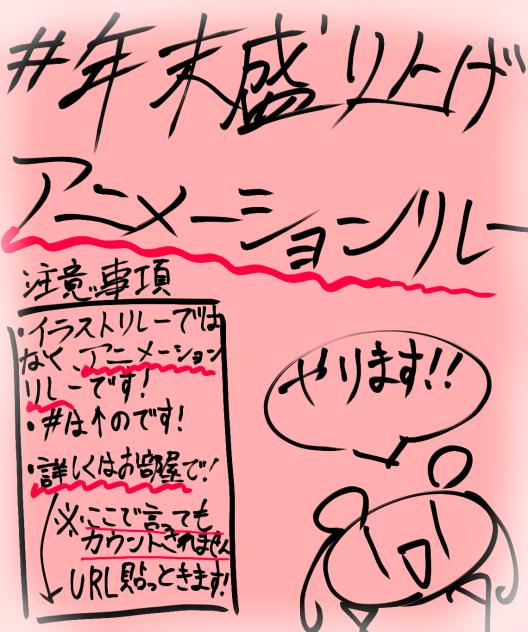 #年末盛り上げ
アニメーションリレー
注意事項
・イラストリレーでは
なく、アニメーション
リレーです!
・#は↑のです!
・詳しくはお部屋で!
※ここで言っても
カウントされません
URL貼っときます!
やります!!